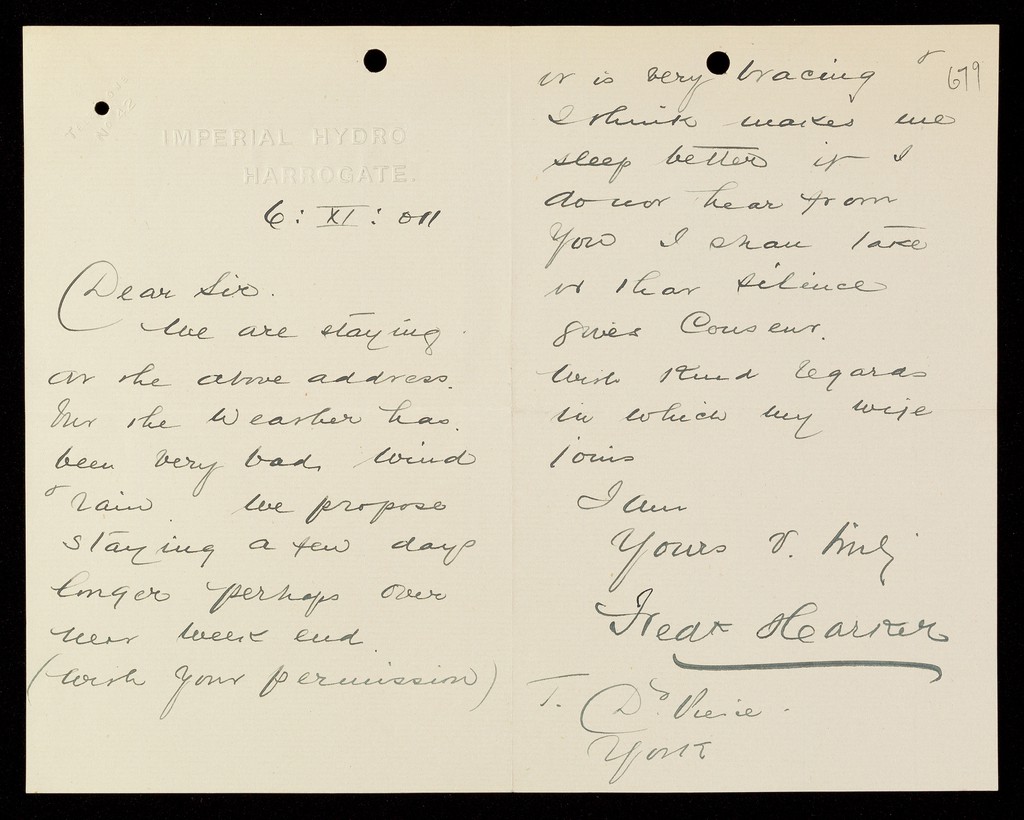 IMPERIAL HYDRO
HARROGATE.
6 : XI : 011
Dear Sir.
We are staying
at the above address.
but the weather has.
been very bad, wind
& rain we propose
staying a few days
longer perhaps over
next week end.
(with your permission)
679
it is very bracing &
I think makes me
sleep better if I
do not hear from
You I shall take
it that silence
gives Consent.
With Kind regards
in which my wife
joins
I am
Yours v. truly
Fredk Harker
T. Dr.
York